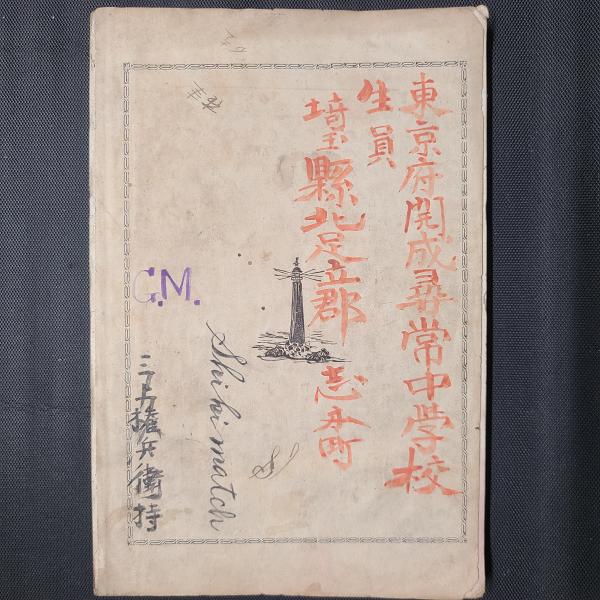 東京府開成尋常中学校
生員
埼玉縣北足立郡志木町
G.M.
Shikimatch
S
三上権兵衛持